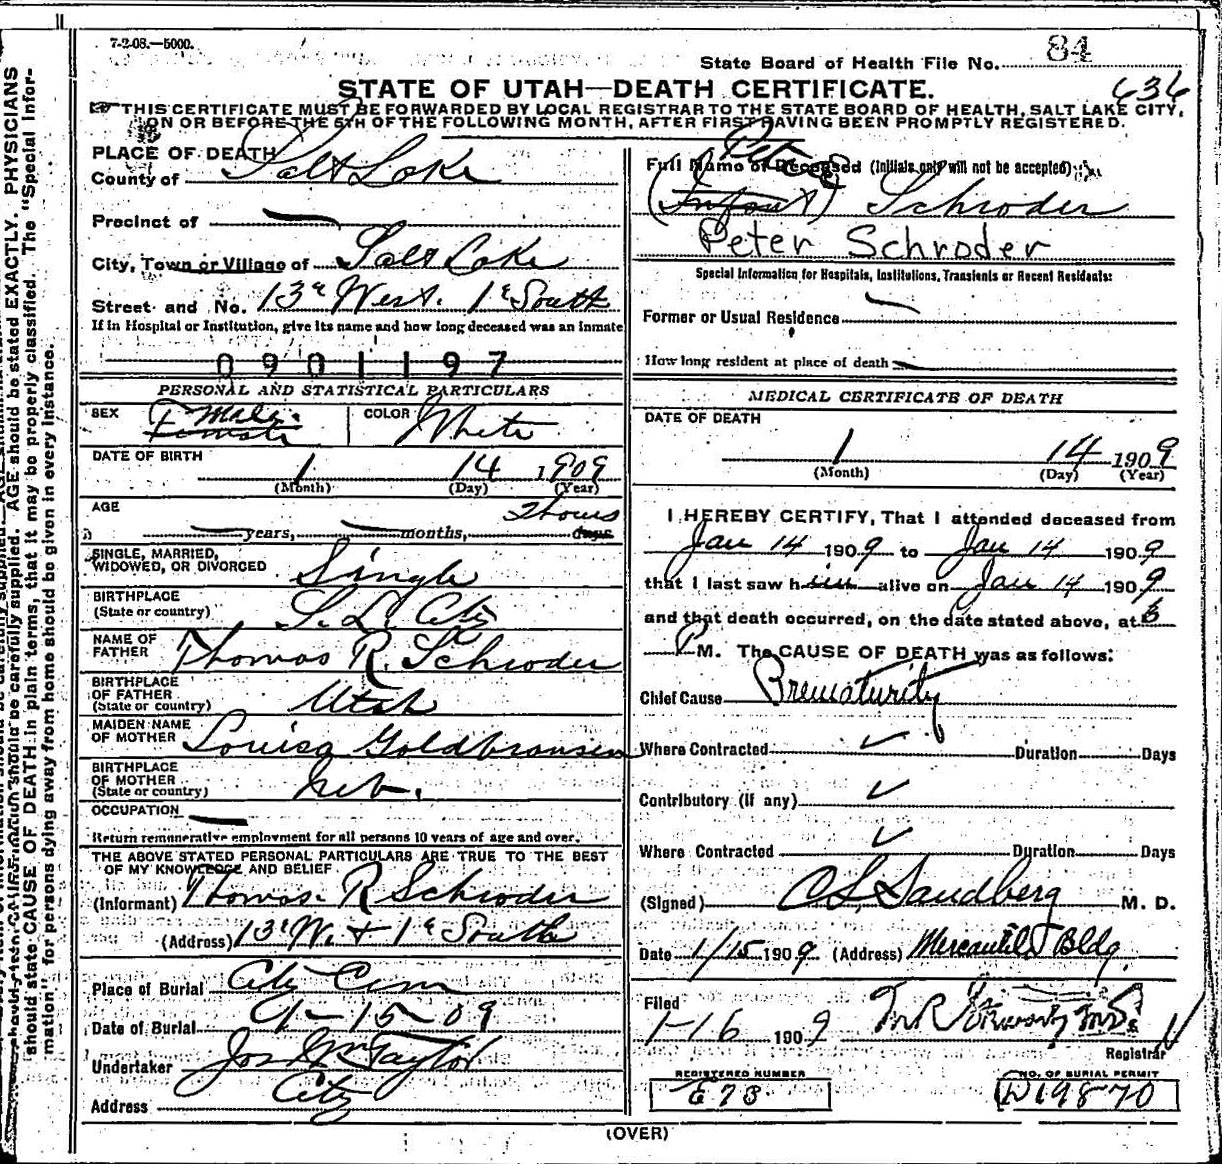 7-2-08.—5000.
State Board of Health File No. 84
STATE OF UTAH—DEATH CERTIFICATE. 636
THIS CERTIFICATE MUST BE FORWARDED BY LOCAL REGISTRAR TO THE STATE BOARD OF HEALTH, SALT LAKE CITY,
ON OR BEFORE THE 5TH OF THE FOLLOWING MONTH, AFTER FIRST HAVING BEEN PROMPTLY REGISTERED.
PLACE OF DEATH
County of Salt Lake
Precinct of
City, Town or Village of Salt Lake
Street and No. 13th West. 1st South
If in Hospital or Institution, give its name and how long deceased was an inmate
0901197
PERSONAL AND STATISTICAL PARTICULARS
SEX Male Female COLOR White
DATE OF BIRTH 1 14 1909
(Month) (Day) (Year)
AGE
years, months, 2 hours days
SINGLE, MARRIED,
WIDOWED, OR DIVORCED Single
BIRTHPLACE
(State or country) S. L. City
NAME OF
FATHER Thomas R. Schroder
BIRTHPLACE
OF FATHER
(State or country) Utah
MAIDEN NAME
OF MOTHER Louisa Goldbransen
BIRTHPLACE
OF MOTHER
(State or country) Neb.
OCCUPATION
Return remunerative employment for all persons 10 years of age and over.
THE ABOVE STATED PERSONAL PARTICULARS ARE TRUE TO THE BEST
OF MY KNOWLEDGE AND BELIEF
(Informant) Thomas R Schroder
(Address) 13th W. + 1st South
Place of Burial City Cem
Date of Burial 1-15-09
Undertaker Jos Wm Taylor
Address City
Full Name of Deceased (Initials only will not be accepted)
Peter
(Infant) Schroder
Peter Schroder
Special Information for Hospitals, Institutions, Transients or Recent Residents:
Former or Usual Residence
How long resident at place of death
MEDICAL CERTIFICATE OF DEATH
DATE OF DEATH
1 14 1909
(Month) (Day) (Year)
I HEREBY CERTIFY, That I attended deceased from
Jan 14 1909 to Jan 14 1909
that I last saw him alive on Jan 14 1909
and that death occurred, on the date stated above, at
P M. The CAUSE OF DEATH was as follows:
Chief Cause Prematurity
Where Contracted Duration Days
Contributory (If any)
Where Contracted Duration Days
(Signed) C L Sandberg M. D.
Date 1/15 1909 (Address) Mercantile Bldg.
Filed
1-16 1909
Registrar
REGISTERED NUMBER
E 73
NO. OF BURIAL PERMIT
D19870
(OVER)
AGE should be stated EXACTLY. PHYSICIANS
should state CAUSE OF DEATH in plain terms, that it may be properly classified. The "Special Infor-
mation" for persons dying away from home should be given in every instance.